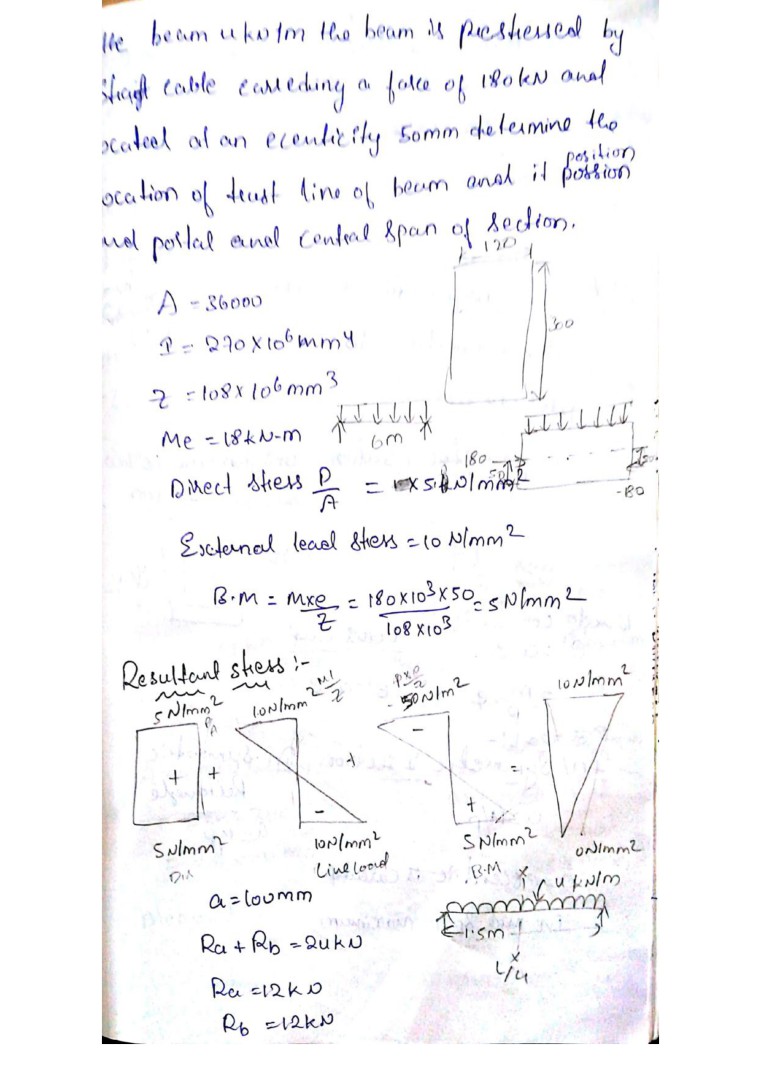 the beam 4kN/m the beam is prestressed by
straigt cable carreding a force of 180kN and
ocated at an ecenticity 50mm determine the
position
ocation of trust line of beam and it possion
and postal and central span of section.
120
A = 36000
300
I = 270×10⁶mm4
Z = 108×10⁶mm³
Me = 18kN-m
6m
180
50
-180
Direct stress P/A = 5 N/mm²
External lead stess = 10 N/mm²
B.M = M×e/Z = 180×10³×50/108×10³ = 5 N/mm²
Resultant stress :-
5 N/mm² P/A
10N/mm² M/Z
P×e/Z
- 50N/m²
10N/mm²
+ + + - + - + =
5N/mm²
10N/mm²
5 N/mm²
0N/mm²
Live load
B.M
a = 100mm
x
4 kN/m
Ra + Rb = 24kN
1.5m
x
L/4
Ra = 12kN
Rb = 12kN